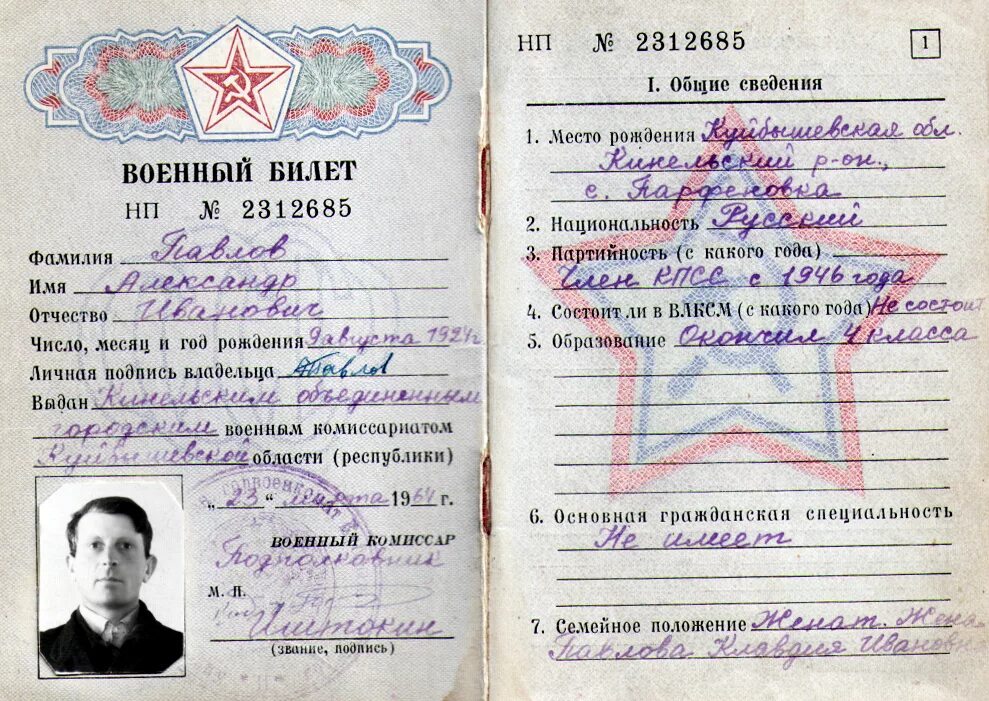 ВОЕННЫЙ БИЛЕТ
НП № 2312685
Фамилия Павлов
Имя Александр
Отчество Иванович
Число, месяц и год рождения 9 августа 1924 г
Личная подпись владельца Павлов
Выдан Кинельским объединенным
городским военным комиссариатом
Куйбышевской области (республики)
„23“ марта 1964 г.
ВОЕННЫЙ КОМИССАР
Подполковник
М. П.
(звание, подпись)
НП № 2312685
1
I. Общие сведения
1. Место рождения Куйбышевская обл.
Кинельский р-он,
с. Парфеновка
2. Национальность Русский
3. Партийность (с какого года)
Член КПСС с 1946 года
4. Состоит ли в ВЛКСМ (с какого года) Не состоит
5. Образование Окончил 4 класса
6. Основная гражданская специальность
Не имеет
7. Семейное положение Женат. Жена
Павлова Клавдия Ивановна